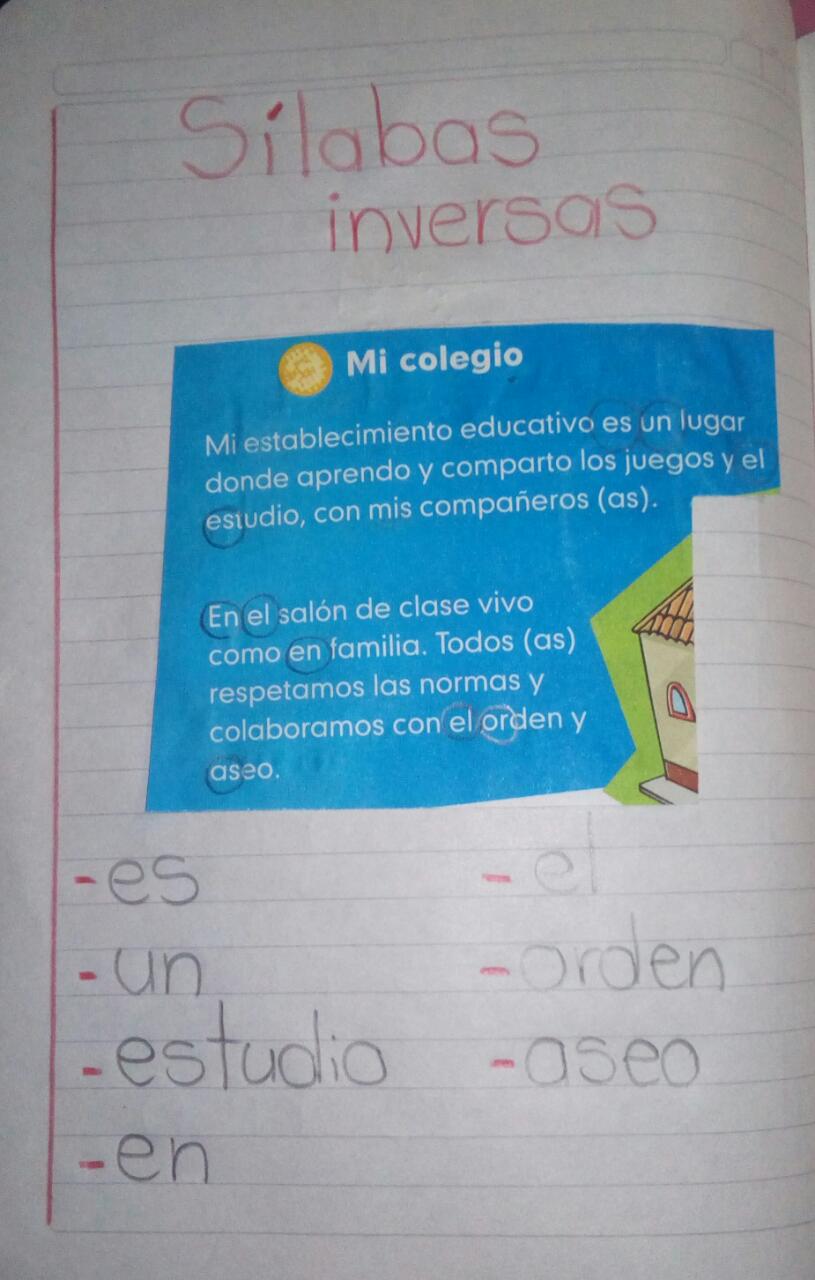 Sílabas
inversas
Mi colegio
Mi establecimiento educativo es un lugar
donde aprendo y comparto los juegos y el
estudio, con mis compañeros (as).
En el salón de clase vivo
como en familia. Todos (as)
respetamos las normas y
colaboramos con el orden y
aseo.
-es
-un
-estudio
-en
-el
-orden
-aseo